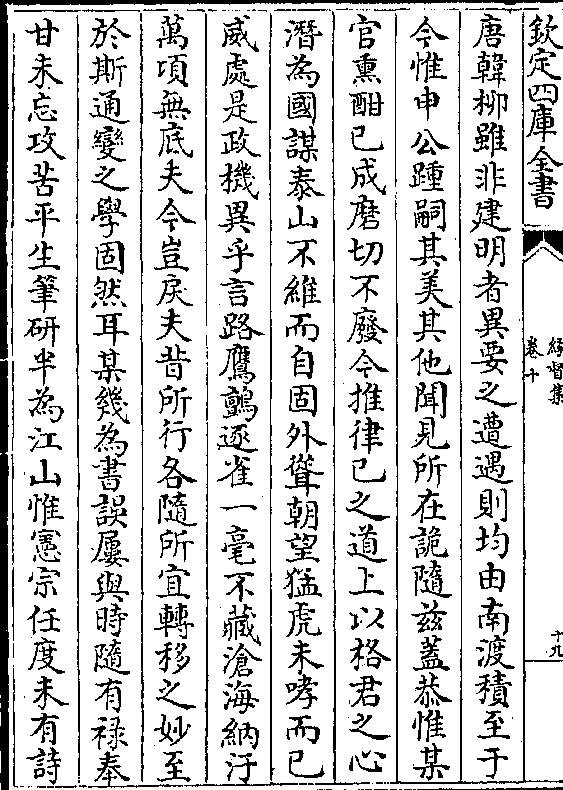 欽定四庫全書
緣督集
卷十
十九
唐韓柳雖非建明者異要之遭遇則均由南渡積至于
今惟申公踵嗣其美其他聞見所在詭隨兹蓋恭惟某
官熏酣已成磨切不廢今推律已之道上以格君之心
潛為國謀泰山不維而自固外聳朝望猛虎未哮而已
威處是政機異乎言路鷹鸇逐雀一毫不藏滄海納汙
萬項無底夫今豈戾夫昔所行各隨所宜轉移之妙至
於斯通變之學固然耳某幾為書誤屢與時隨有禄奉
甘未忘攻苦平生筆研半為江山惟憲宗任度未有詩